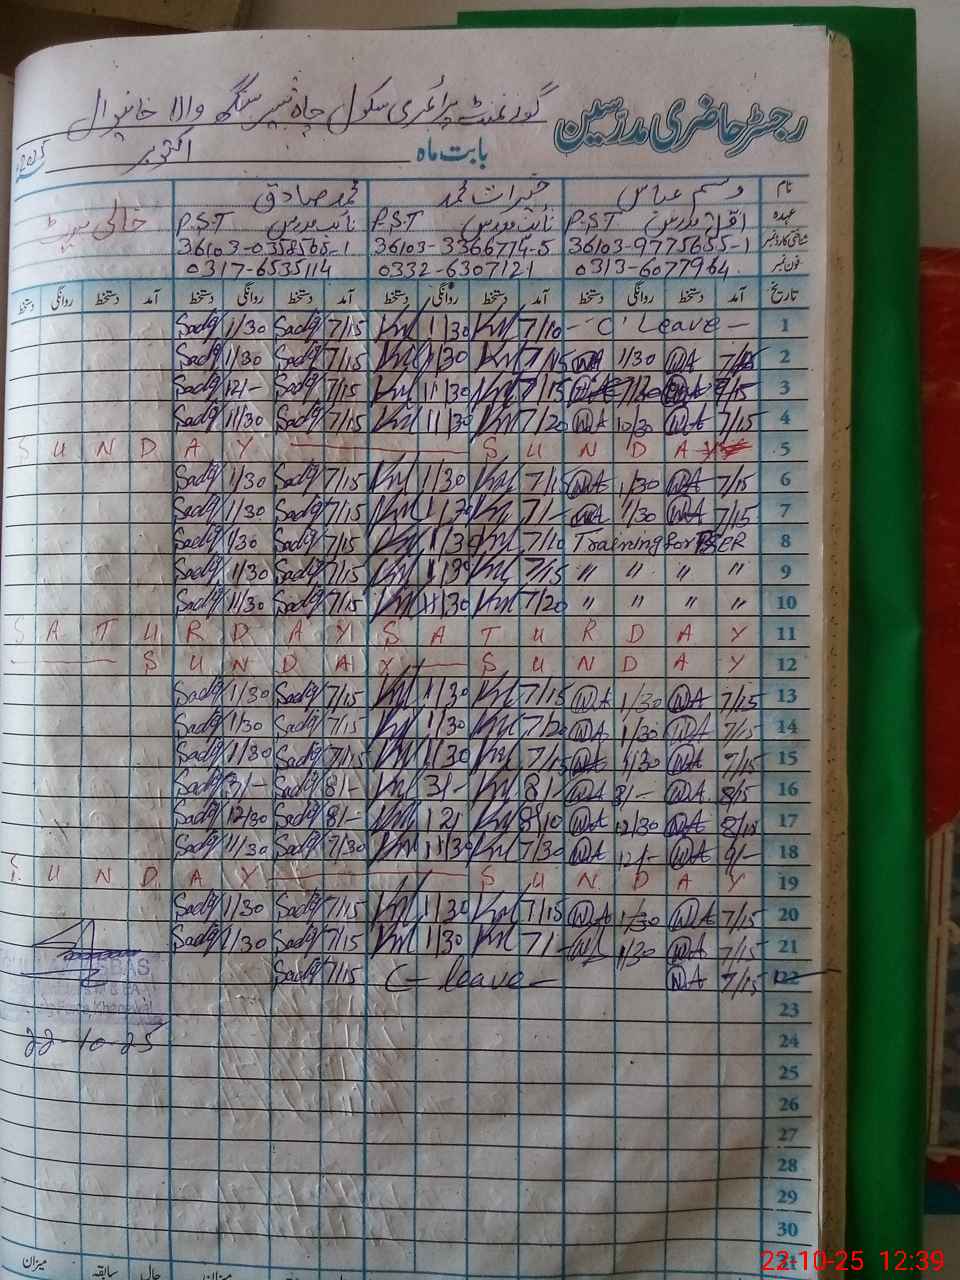 رجسٹر حاضری مدرسین
گورنمنٹ پرائمری سکول چاہ شیر سنگھ والا خانیوال
بابت ماہ اکتوبر 2025ء
نام وسیم عباس خیرات محمد محمد صادق
عہدہ P.S.T P.S.T P.S.T خالی سیٹ
شناختی کارڈ نمبر 36103-9775655-1 36103-3366714-5 36103-0358565-1
فون نمبر 0313-6077964 0332-6307121 0317-6535114
تاریخ آمد دستخط روانگی دستخط آمد دستخط روانگی دستخط آمد دستخط روانگی دستخط آمد دستخط روانگی دستخط
Sadq 1/30 Sadq 7/15 Km 1/30 Km 7/10 - 'C' Leave - 1
Sadq 1/30 Sadq 7/15 Km 1/30 Km 7/15 WA 1/30 WA 7/15 2
Sadq 12/- Sadq 7/15 Km 11/30 Km 7/15 3
Sadq 11/30 Sadq 7/15 Km 11/30 Km 7/20 WA 10/30 WA 7/15 4
S U N D A Y S U N D A Y 5
Sadq 1/30 Sadq 7/15 Km 1/30 Km 7/15 WA 1/30 WA 7/15 6
Sadq 1/30 Sadq 7/15 Km 1/30 Km 7/- WA 1/30 WA 7/15 7
Sadq 1/30 Sadq 7/15 Km 1/30 Km 7/10 Training for PSER 8
Sadq 1/30 Sadq 7/15 Km 1/30 Km 7/15 " " " " 9
Sadq 11/30 Sadq 7/15 Km 11/30 Km 7/20 " " " " 10
S A T U R D A Y S A T U R D A Y 11
S U N D A Y S U N D A Y 12
Sadq 1/30 Sadq 7/15 Km 1/30 Km 7/15 WA 1/30 WA 7/15 13
Sadq 1/30 Sadq 7/15 Km 1/30 Km 7/20 WA 1/30 WA 7/15 14
Sadq 1/30 Sadq 7/15 Km 1/30 Km 7/15 WA 1/30 WA 7/15 15
Sadq 3/- Sadq 8/- Km 3/- Km 8/- WA 3/- WA 8/5 16
Sadq 12/30 Sadq 8/- Km 12/ Km 8/10 WA 12/30 WA 8/15 17
Sadq 11/30 Sadq 7/30 Km 11/30 Km 7/30 WA 12/- WA 9/- 18
S U N D A Y S U N D A Y 19
Sadq 1/30 Sadq 7/15 Km 1/30 Km 7/15 WA 1/30 WA 7/15 20
Sadq 1/30 Sadq 7/15 Km 1/30 Km 7/- WA 1/30 WA 7/15 21
Sadq 7/15 C - leave - WA 7/15 22
23
22-10-25 24
25
26
27
28
29
30
31
میزان سابقہ حالیہ میزان
22-10-25 12:39